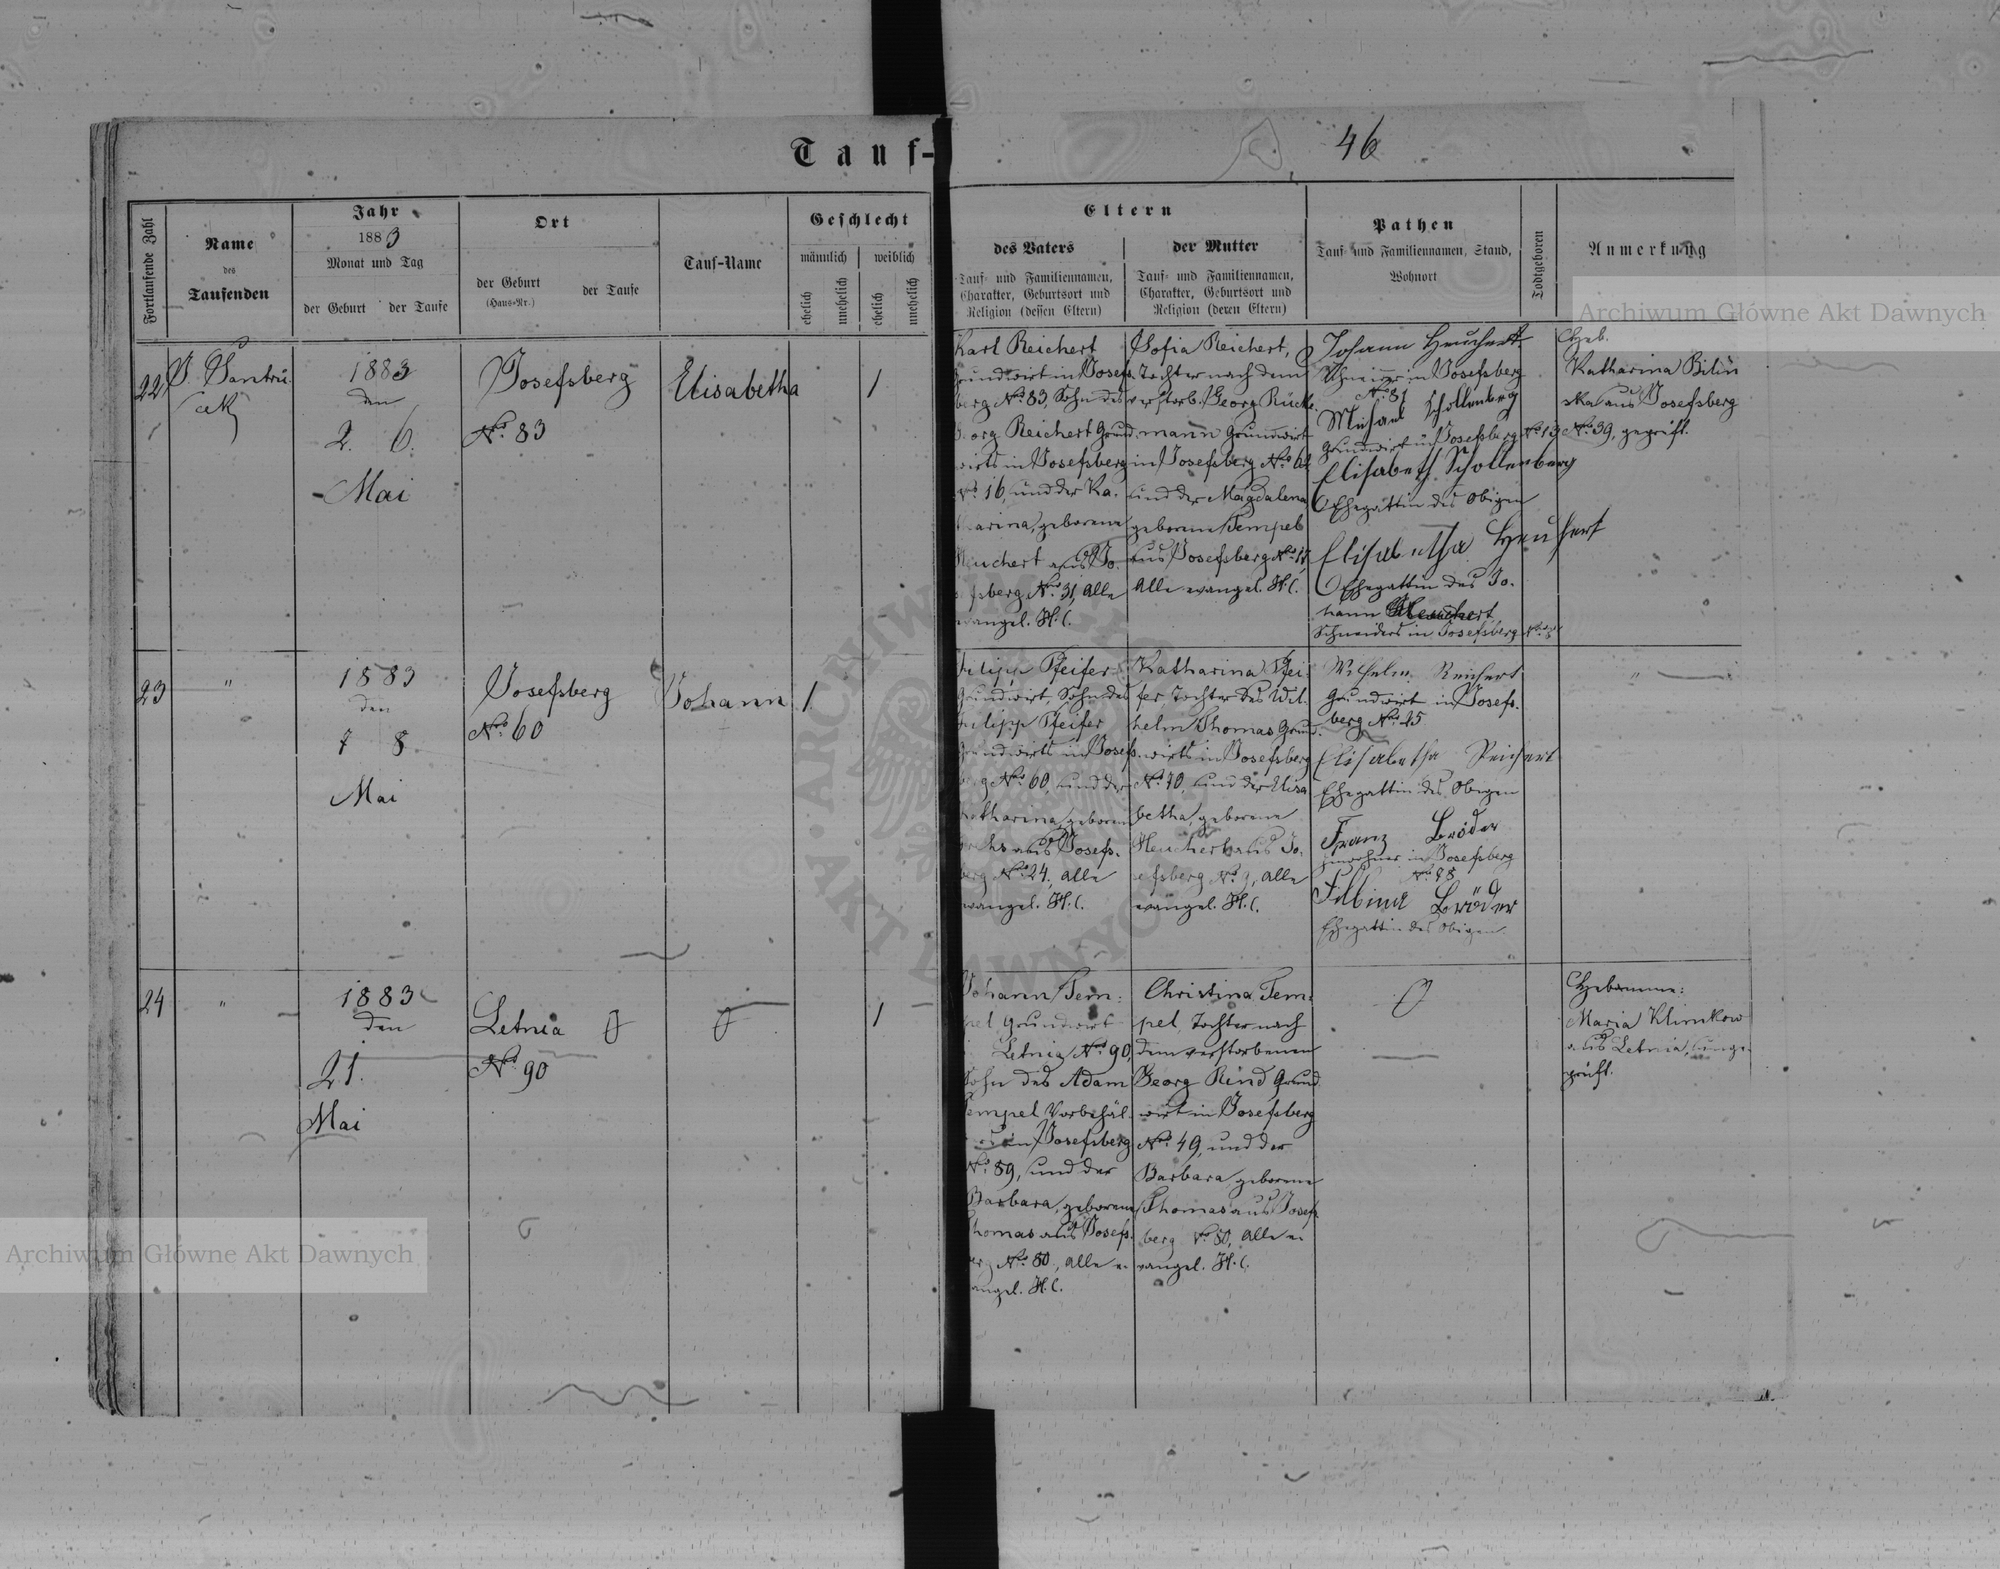 Tauf-
46
Fortlaufende Zahl
Name
des
Taufenden
Jahr
1883
Monat und Tag
der Geburt
der Taufe
Ort
der Geburt
(Haus-Nr.)
der Taufe
Tauf-Name
Geschlecht
männlich
weiblich
ehelich
unehelich
ehelich
unehelich
Eltern
des Vaters
Tauf- und Familiennamen,
Charakter, Geburtsort und
Religion (dessen Eltern)
der Mutter
Tauf- und Familiennamen,
Charakter, Geburtsort und
Religion (deren Eltern)
Pathen
Tauf- und Familiennamen, Stand,
Wohnort
Todtgeboren
Anmerkung
22
1883
den
2. 6.
Mai
Josefsberg
No. 83
Elisabetha
1
Karl Reichert
Grundwirt in Josefs
berg No. 83, Sohn des
Georg Reichert Grund
wirts in Josefsberg
No. 16, und der Ka-
tharina, geborene
Heuchert aus Jo-
sefsberg No. 31, Alle
evangel. H. C.
Sofia Reichert,
Tochter nach dem
verstorb. Georg Rücke
mann Grundwirt
in Josefsberg No. 62
und der Magdalena
geborene Tempel
aus Josefsberg No.
Alle evangel. H. C.
Johann Heuchert
Schneider in Josefsberg
No. 81
Michael Schollenberg
Grundwirt in Josefsberg No. 13
Elisabeth Schollenberg
Ehegattin des Obigen
Elisabetha Heuchert
Ehegattin des Jo-
hann Heuchert
Schneiders in Josefsberg
Heb.
Katharina Bilin
ska aus Josefsberg
No. 39, geprüft.
23
"
1883
den
7 8
Mai
Josefsberg
No. 60
Johann
1
Philipp Pfeifer
Grundwirt, Sohn des
Philipp Pfeifer
Grundwirts in Josefs
berg No. 60, und der
Katharina, geborene
aus Josefs-
berg No. 24, alle
evangel. H. C.
Katharina Pfei-
fer, Tochter des Wil-
helm Thomas Grund-
wirts in Josefsberg
No. 70, und der Elisa
betha, geborene
Heuchert aus Jo-
sefsberg No. 9, alle
evangel. H. C.
Wilhelm Reichert
Grundwirt in Josefs-
berg No. 25
Elisabetha Reichert
Ehegattin des Obigen
Franz Bröder
Inwohner in Josefsberg
No. 88
Filbina Bröder
Ehegattin des Obigen
"
24
"
1883
den
21.
Mai
Letnia
No. 90
1
Johann Tem-
pel Grundwirt
Letnia No. 90,
Sohn des Adam
Tempel Vorbehäl-
in Josefsberg
No. 89, und der
Barbara, geborene
Thomas aus Josefs-
berg No. 80, alle e-
vangel. H. C.
Christina Tem-
pel, Tochter nach
dem verstorbenen
Georg Rind Grund
wirt in Josefsberg
No. 49, und der
Barbara, geborene
Thomas aus Josefs
berg No. 80, Alle e-
vangel. H. C.
Hebamme:
Maria Klimkow
aus Letnia, unge-
prüft.
Archiwum Główne Akt Dawnych
Archiwum Główne Akt Dawnych